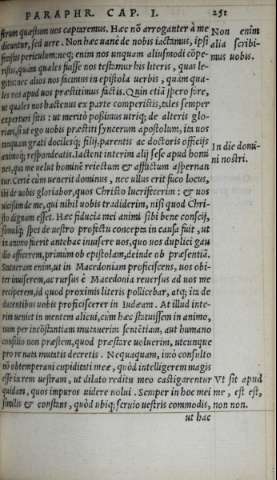 PARAPHR. CAP. I. 251
ſtrum quæstum uos capturemus. Hæc nō arroganter à me
dicuntur, ſed uere. Non hæc uanè de nobis iactamus, ipſi
Non enim
alia ſcribi-
mus uobis.
riſtis, quàm quales fuiſſe nos teſtamur his literis, quas le-
gitis: nec alios nos ſcimus in epiſtola uerbis, quàm qua-
les nos apud uos præſtitimus factis. Quin etiā ſpero fore,
ut quales nos hactenus ex parte comperiſtis, tales ſemper
experturi ſitis: ut meritò poſsimus utrīq; de alteris glo-
riari, ſiut ego uobis præſtiti ſyncerum apoſtolum, ita uos
uiciſsim grati docileſq; filij, parentis ac doctoris officijs
animoq; reſpondeatis. Iactent interim alij ſeſe apud homi
nes, qui me uelut hominē reiectum & afflictum aſpernan
In die domi-
ni noſtri.
tur. Certè cùm uenerit dominus, nec ullus erit fuco locus,
ibi de uobis gloriabor, quos Chriſto lucrifecerim: & uos
uiciſsim de me, qui nihil uobis tradiderim, niſi quod Chri-
ſto dignum eſſet. Hac fiducia mei animi ſibi bene conſcij,
ſimulq; ſpei de ueſtro profectu conceptæ in cauſa fuit, ut
in animo fuerit antehac inuiſere uos, quo uos duplici gau
dio afficerem, primùm ob epiſtolam, deinde ob præſentiā.
Statueram enim, ut in Macedoniam proficiſcens, uos obi-
ter inuiſerem, ac rurſus è Macedonia reuerſus ad uos me
reciperem, id quod proximis literis pollicebar, atq; ita de
ducentibus uobis proficiſcerer in Iudæam. At illud inte-
rim uenit in mentem alicui, cùm hæc ſtatuiſſem in animo,
num per incōſtantiam mutauerim ſentētiam, aut humano
conſilio non præſtem, quod præſtare uoluerim, utcunque
pro re nata mutatis decretis. Nequaquam, imò conſulto
nō obtemperani cupiditati meæ, quòd intelligerem magis
eſſe in rem ueſtram, ut dilato reditu meo caſtigarentur
Vt ſit apud
quidam, quos impuros uidere nolui. Semper in hoc mei
me, eſt eſt,
ſimilis & conſtans, quòd ubiq; ſeruio ueſtris commodis,
non non.
ut hac